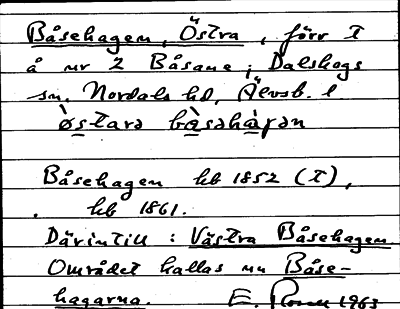 Båsehagen, Östra, förr T
å nr 2 Båsane; Dalskogs
sn, Nordals hd, Älvsb. l
òstara bàsahàgan
Båsehagen hb 1852 (T),
. hb 1861.
Därintill: Västra Båsehagen.
Området kallas nu Båse-
hagarna. E. 1963